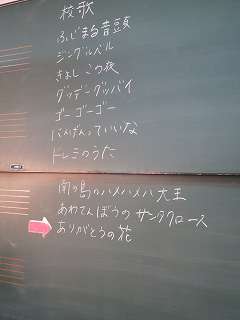 校歌
ふじまる音頭
ジングルベル
きよしこの夜
グッデーグッバイ
ゴーゴーゴー
にんげんっていいな
ドレミのうた
南の島のハメハメハ大王
あわてんぼうのサンタクロース
ありがとうの花